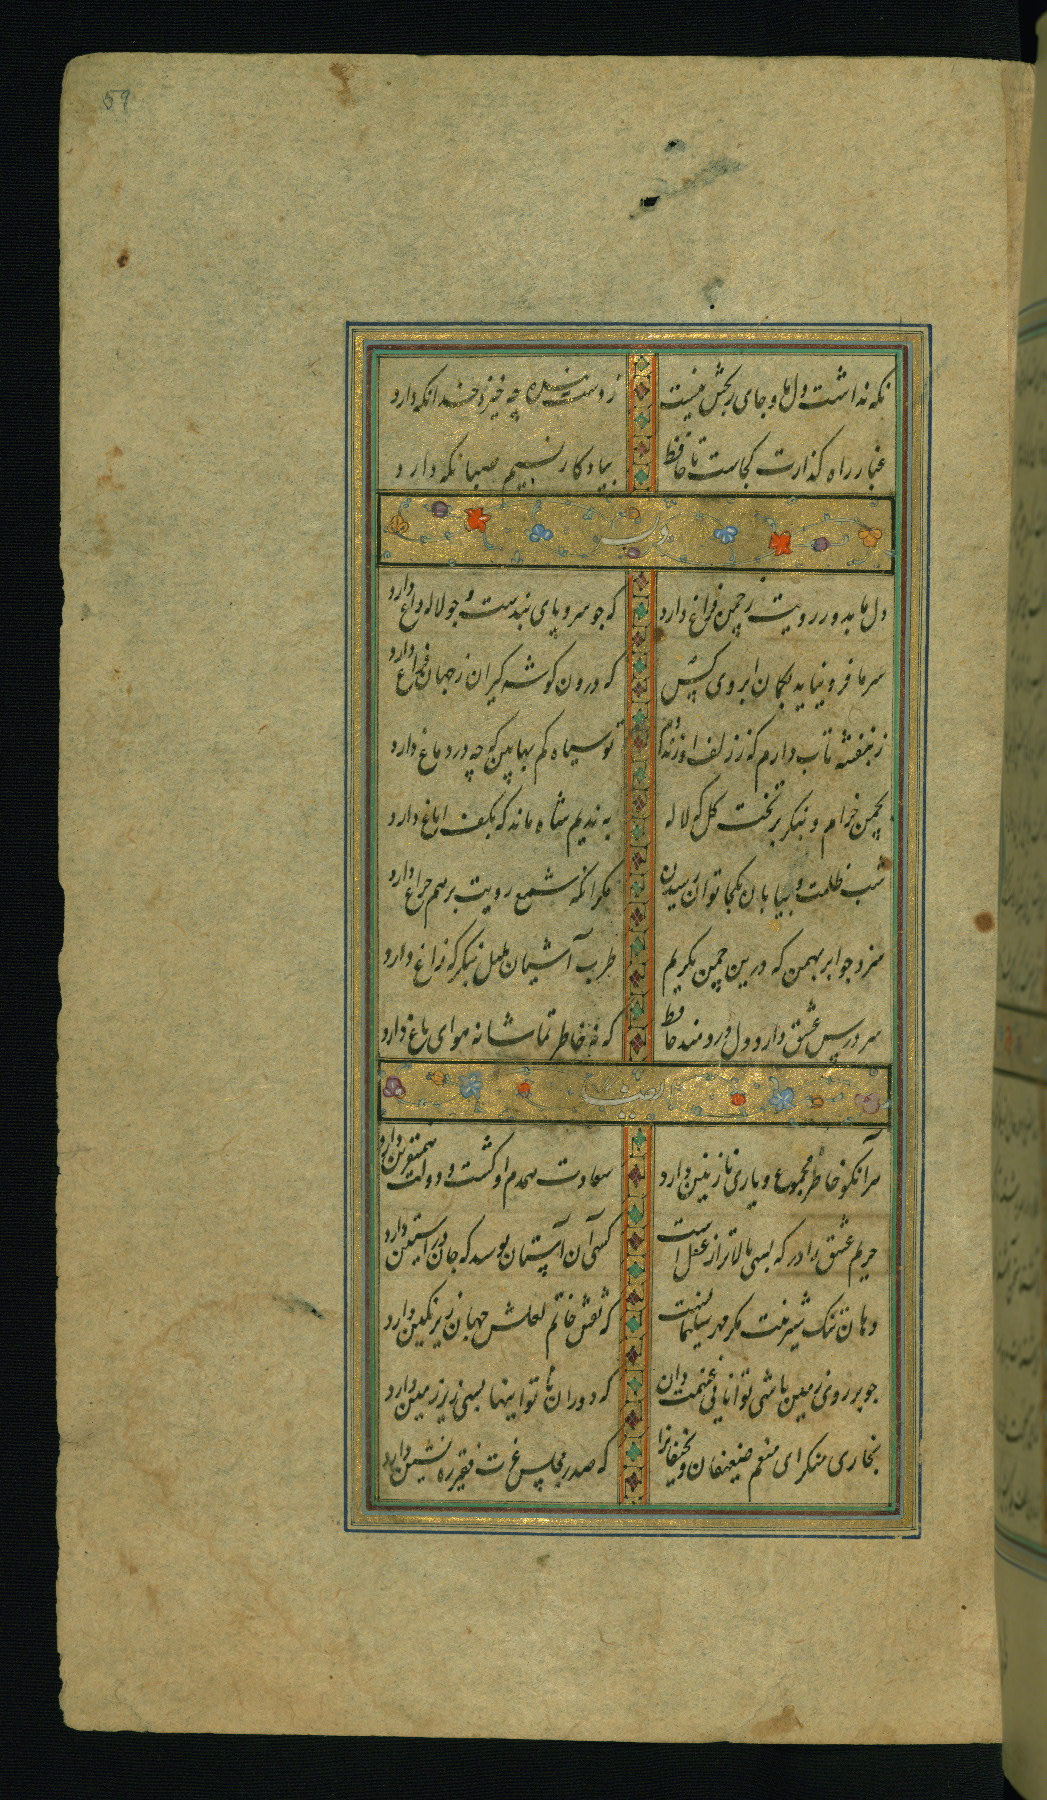 59
نکه نداشت دل ما و جای رنجش نیست ز دست بنده چه خیزد خدا نکه دارد
غبار راه کذارت کجاست تا حافظ بیادکار نسیم صبا نکه دارد
دل ما بدور رویت ز چمن فراغ دارد که جو سرو پای بندست و جو لاله داغ دارد
سر ما فرو نیاید بکمان ابروی کس که درون کوشه کیران ز جهان فراغ دارد
ز بنفشه تاب دارم که ز زلف او زند دم تو سیاه کم بها بین که چه در دماغ دارد
بچمن خرام و بنکر بر تخت کل که لاله به ندیم شاه ماند که بکف ایاغ دارد
شب ظلمت و بیابان بکجا توان رسیدن مکر انکه شمع رویت برهم چراغ دارد
سزد جو ابر بهمن که درین چمن بکریم طرب آشیان بلبل بنکر که زاغ دارد
سر درس عشق دارد دل دردمند حافظ که نه خاطر تماشا نه هوای باغ دارد
ایضا
هر آنکو خاطر مجموع و یاری نازنین دارد سعادت همدم او کشت و دولت همنشین دارد
حریم عشق را درکه بسی بالاتر از عقل است کسی آن آستان بوسد که جان در آستین دارد
دهان تنک شیرینت مکر مهر سلیمانیست که نقش خاتم لعلش جهان زیر نکین دارد
جو بر روی زمین باشی توانایی غنیمت دان که دوران ناتواینها بسی زیر زمین دارد
بخاری منکر ای منعم ضعیفان و نحیفانرا که صدر مجلس عزت فقیر ره نشین دارد